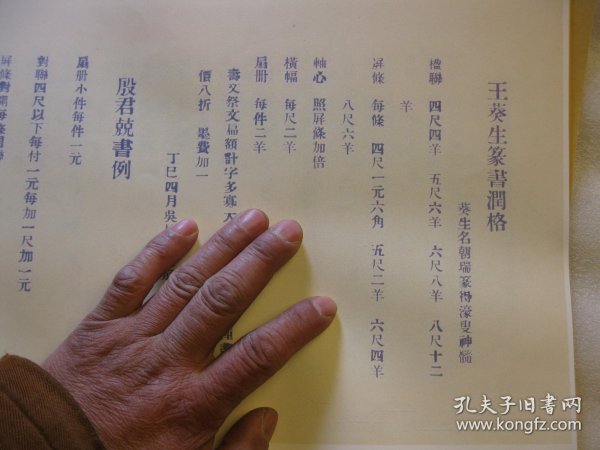 王葵生篆書潤格
葵生名朝瑞篆得濠叟神髓
楹聯　四尺四羊　五尺六羊　六尺八羊　八尺十二
羊
屏條　每條　四尺一元六角　五尺二羊　六尺四羊
八尺六羊
軸心　照屏條加倍
橫幅　每尺二羊
扇册　每件二羊
壽文祭文扁額計字多寡
價八折　墨費加一
丁巳四月吳
殷君兢書例
扇册小件每件一元
對聯四尺以下每付一元每加一尺加一元
屏條對開每條
孔夫子旧书网
www.kongfz.com